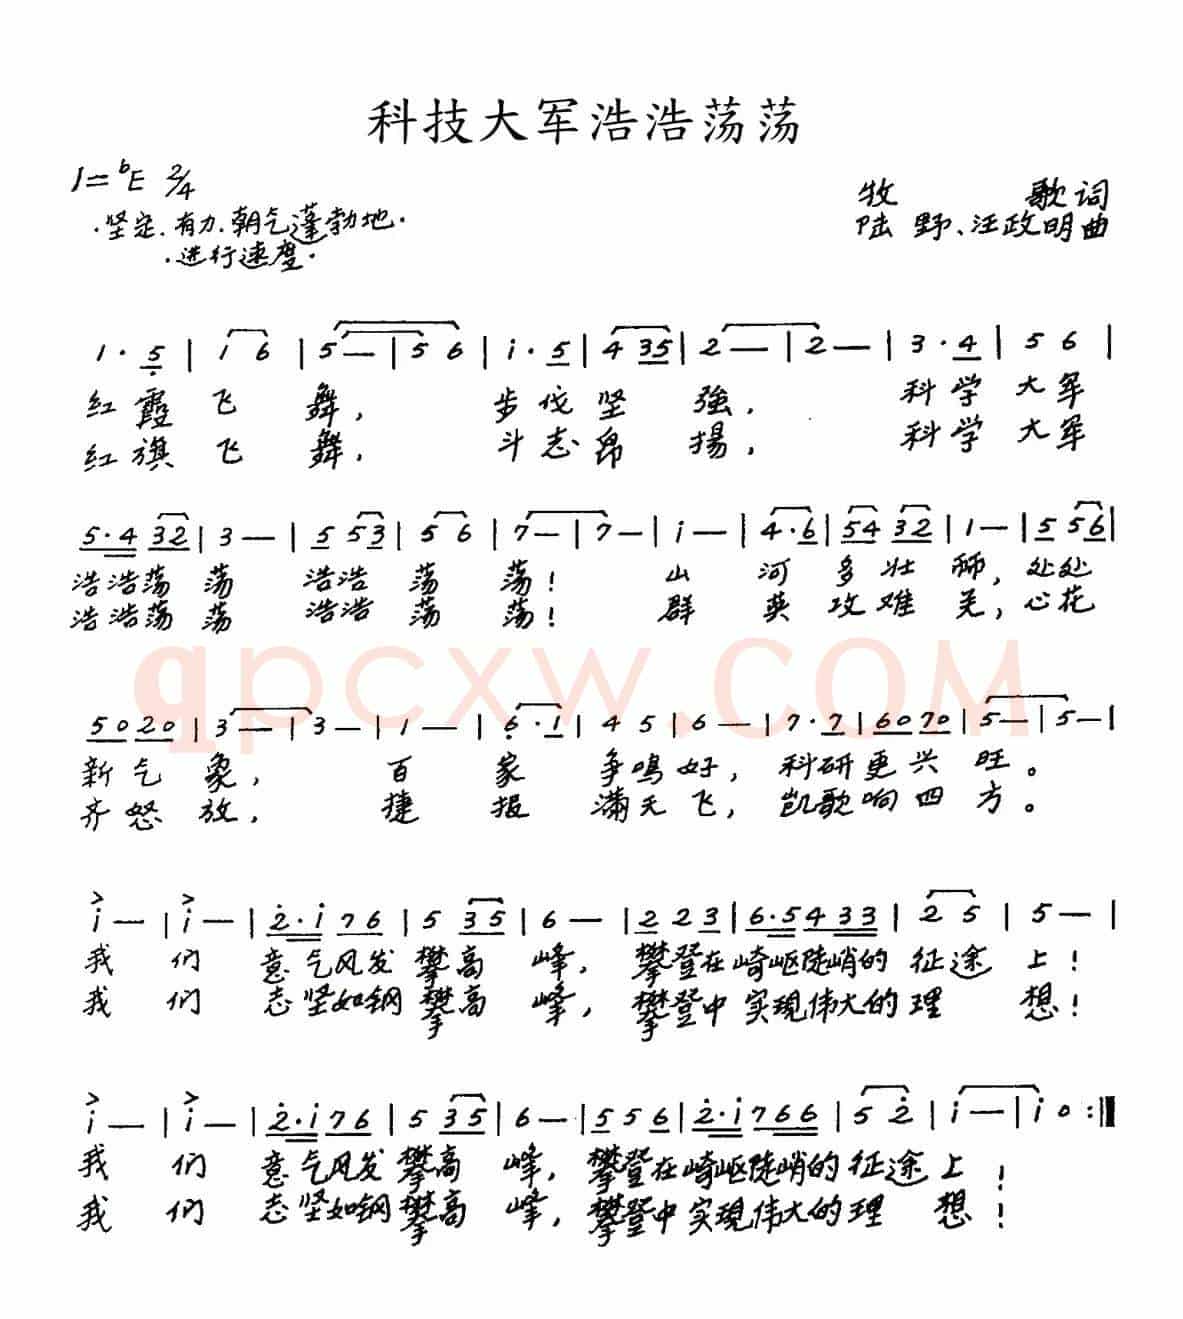 科技大军浩浩荡荡
1=ᵇE 2/4
·坚定、有力、朝气蓬勃地·
·进行速度·
牧 歌词
陆 野、汪政明曲
1·5̣ | 1̇ 6 | 5 — | 5 6 | 1̇·5 | 4 35 | 2 — | 2 — | 3·4 | 5 6 |
红霞飞舞，步伐坚强，科学大军
红旗飞舞，斗志昂揚，科学大军
5·4 32 | 3 — | 5 53 | 5 6 | 7 — | 7 — | 1̇ — | 4·6 | 54 32 | 1 — | 5 56 |
浩浩荡荡 浩浩荡荡！ 山河多壮丽，处处
浩浩荡荡 浩浩荡荡！ 群英攻难关，心花
qpcxw.COM
50 20 | 3 — | 3 — | 1 — | 6̣·1 | 4 5 | 6 — | 7·7 | 60 70 | 5 — | 5 — |
新气象，百家争鸣好，科研更兴旺。
齐怒放，捷报满天飞，凯歌响四方。
1̇ — | 1̇ — | 2̇·1̇ 76 | 5 35 | 6 — | 2 2 3 | 6·5 4 33 | 2 5 | 5 — |
我们意气风发攀高峰，攀登在崎岖陡峭的征途上！
我们志坚如钢攀高峰，攀登中实現伟大的理想！
1̇ — | 1̇ — | 2̇·1̇ 76 | 5 35 | 6 — | 5 5 6 | 2̇·1̇ 7 66 | 5 2̇ | 1̇ — | 1̇ 0 :‖
我们意气风发攀高峰，攀登在崎岖陡峭的征途上！
我们志坚如钢攀高峰，攀登中实現伟大的理想！